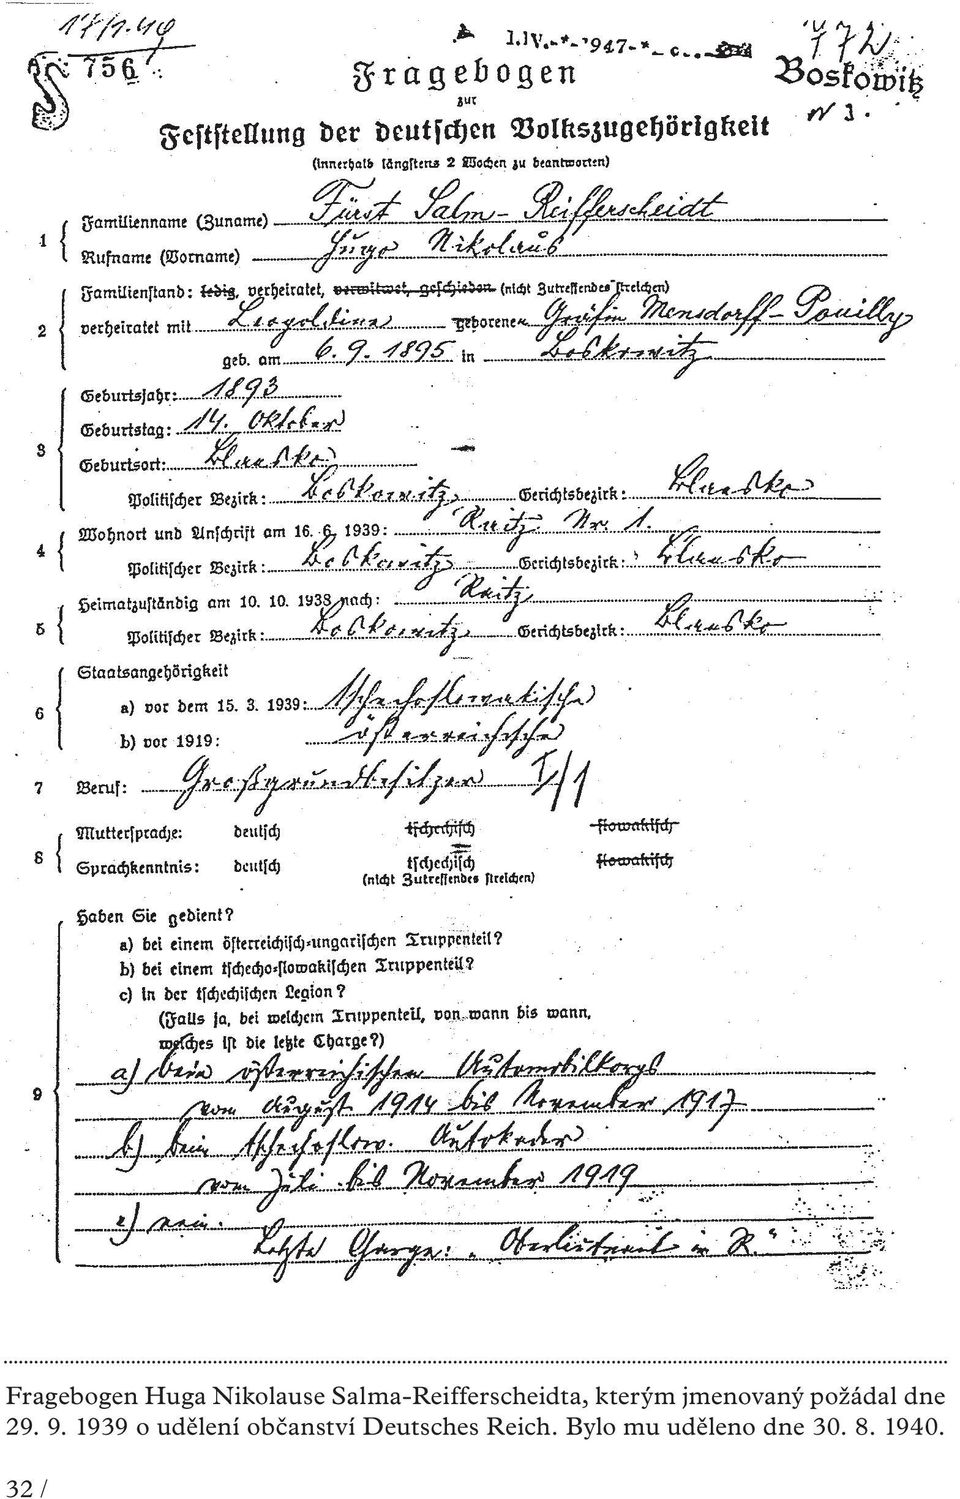 17/1.40
I.IV.-*-'947-*- c.
772
756
Fragebogen
Boskowitz
zur
Nr 3.
Feststellung der deutschen Volkszugehörigkeit
(innerhalb längstens 2 Wochen zu beantworten)
1 { Familienname (Zuname) Fürst Salm-Reifferscheidt
Rufname (Vorname) Hugo Nikolaus
2 { Familienstand: ledig, verheiratet, verwitwet, geschieden (nicht Zutreffendes streichen)
verheiratet mit Leopoldine geborenen Gräfin Mensdorff-Pouilly
geb. am 6. 9. 1895 in Boskowitz
3 { Geburtsjahr: 1893
Geburtstag: 14. Oktober
Geburtsort: Blansko
Politischer Bezirk: Boskowitz Gerichtsbezirk: Blansko
4 { Wohnort und Anschrift am 16. 6. 1939: Raitz Nr. 1.
Politischer Bezirk: Boskowitz Gerichtsbezirk: Blansko
5 { Heimatzuständig am 10. 10. 1938 nach: Raitz
Politischer Bezirk: Boskowitz Gerichtsbezirk: Blansko
6 { Staatsangehörigkeit
a) vor dem 15. 3. 1939: tschechoslowakische
b) vor 1919: österreichische
7 Beruf: Großgrundbesitzer I/1
8 { Muttersprache: deutsch tschechisch slowakisch
Sprachkenntnis: deutsch tschechisch slowakisch
(nicht Zutreffendes streichen)
9 { Haben Sie gedient?
a) bei einem österreichisch-ungarischen Truppenteil?
b) bei einem tschecho-slowakischen Truppenteil?
c) in der tschechischen Legion?
(Falls ja, bei welchem Truppenteil, von wann bis wann,
welches ist die letzte Charge?)
a) beim österreichischen Automobilkorps
vom August 1914 bis November 1917
b) beim tschechoslow. Autokader
vom Juli bis November 1919
c) nein.
Letzte Charge: „Oberleutnant in R."
Fragebogen Huga Nikolause Salma-Reifferscheidta, kterým jmenovaný požádal dne
29. 9. 1939 o udělení občanství Deutsches Reich. Bylo mu uděleno dne 30. 8. 1940.
32 /